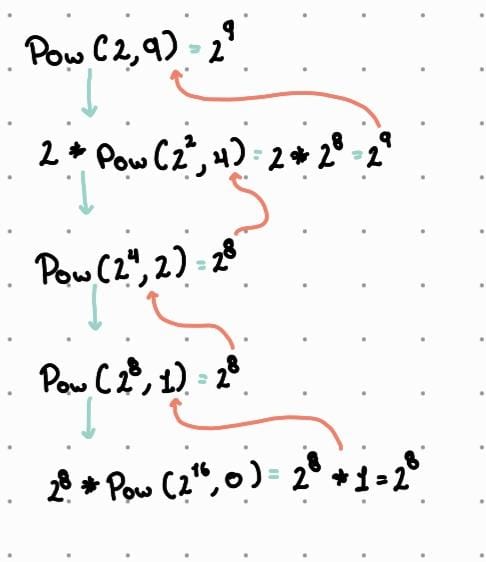 Pow(2,9) = 2⁹
2 * Pow(2²,4) = 2 * 2⁸ = 2⁹
Pow(2⁴,2) = 2⁸
Pow(2⁸,1) = 2⁸
2⁸ * Pow(2¹⁶,0) = 2⁸ * 1 = 2⁸